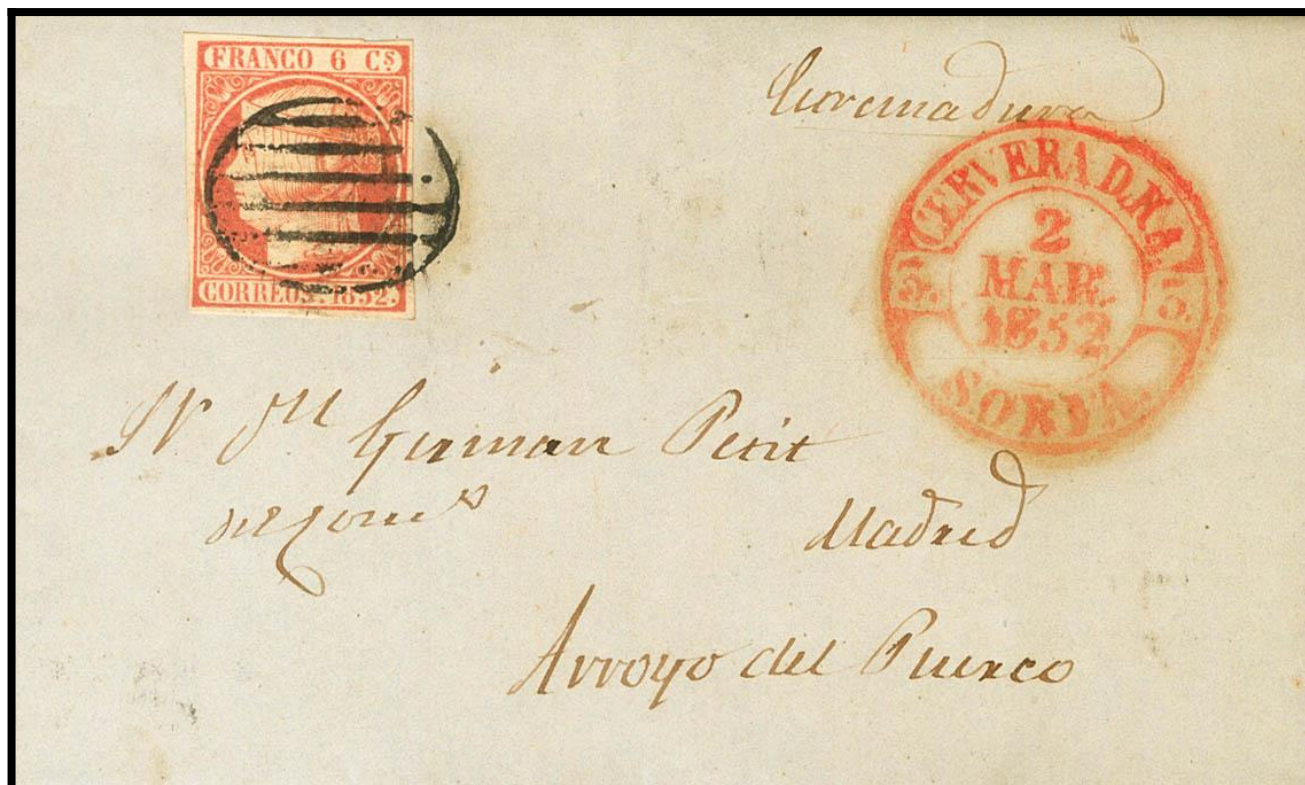 FRANCO 6 Cs
CORREOS. 1852.
Extremadura
CERVERA D.R.A.
2
MAR.
1852
SORIA.
Sr Dn German Petit
del Como
Madrid
Arroyo del Puerco